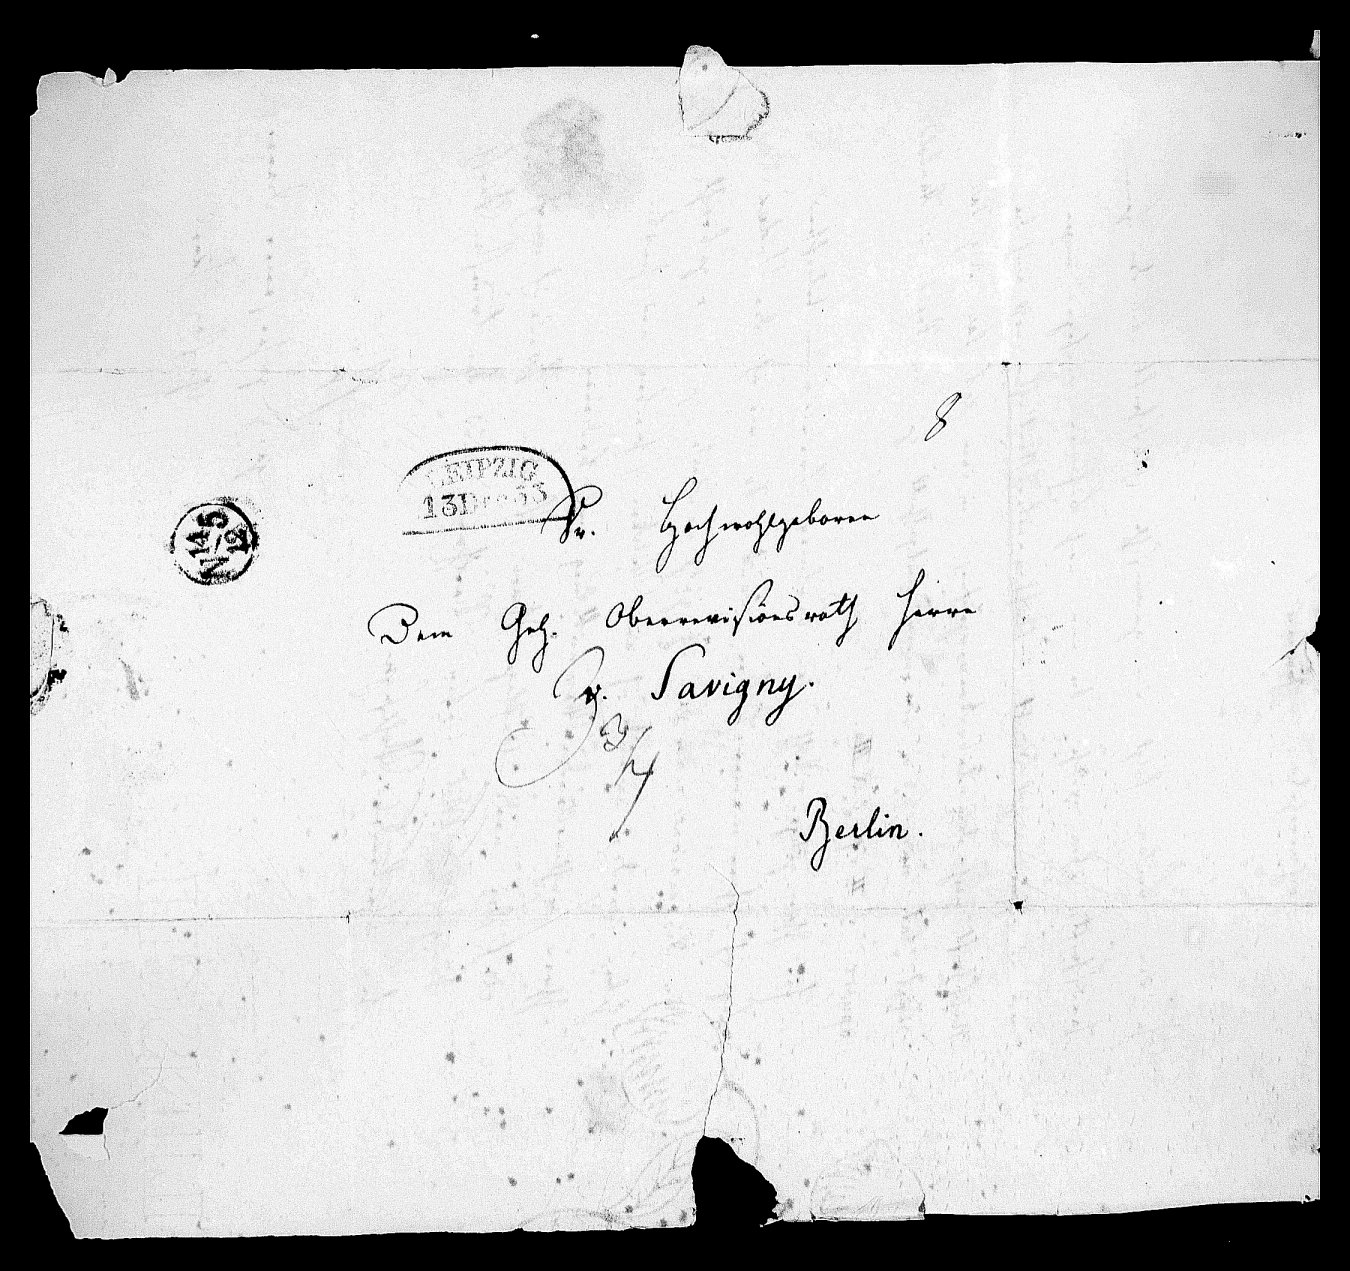 8
LEIPZIG
13 Dec 33
N 14 5
12
Sr. Hochwohlgeboren
Dem Geh. Oberrevisionsrath Herrn
v. Savigny.
3/4
Berlin.